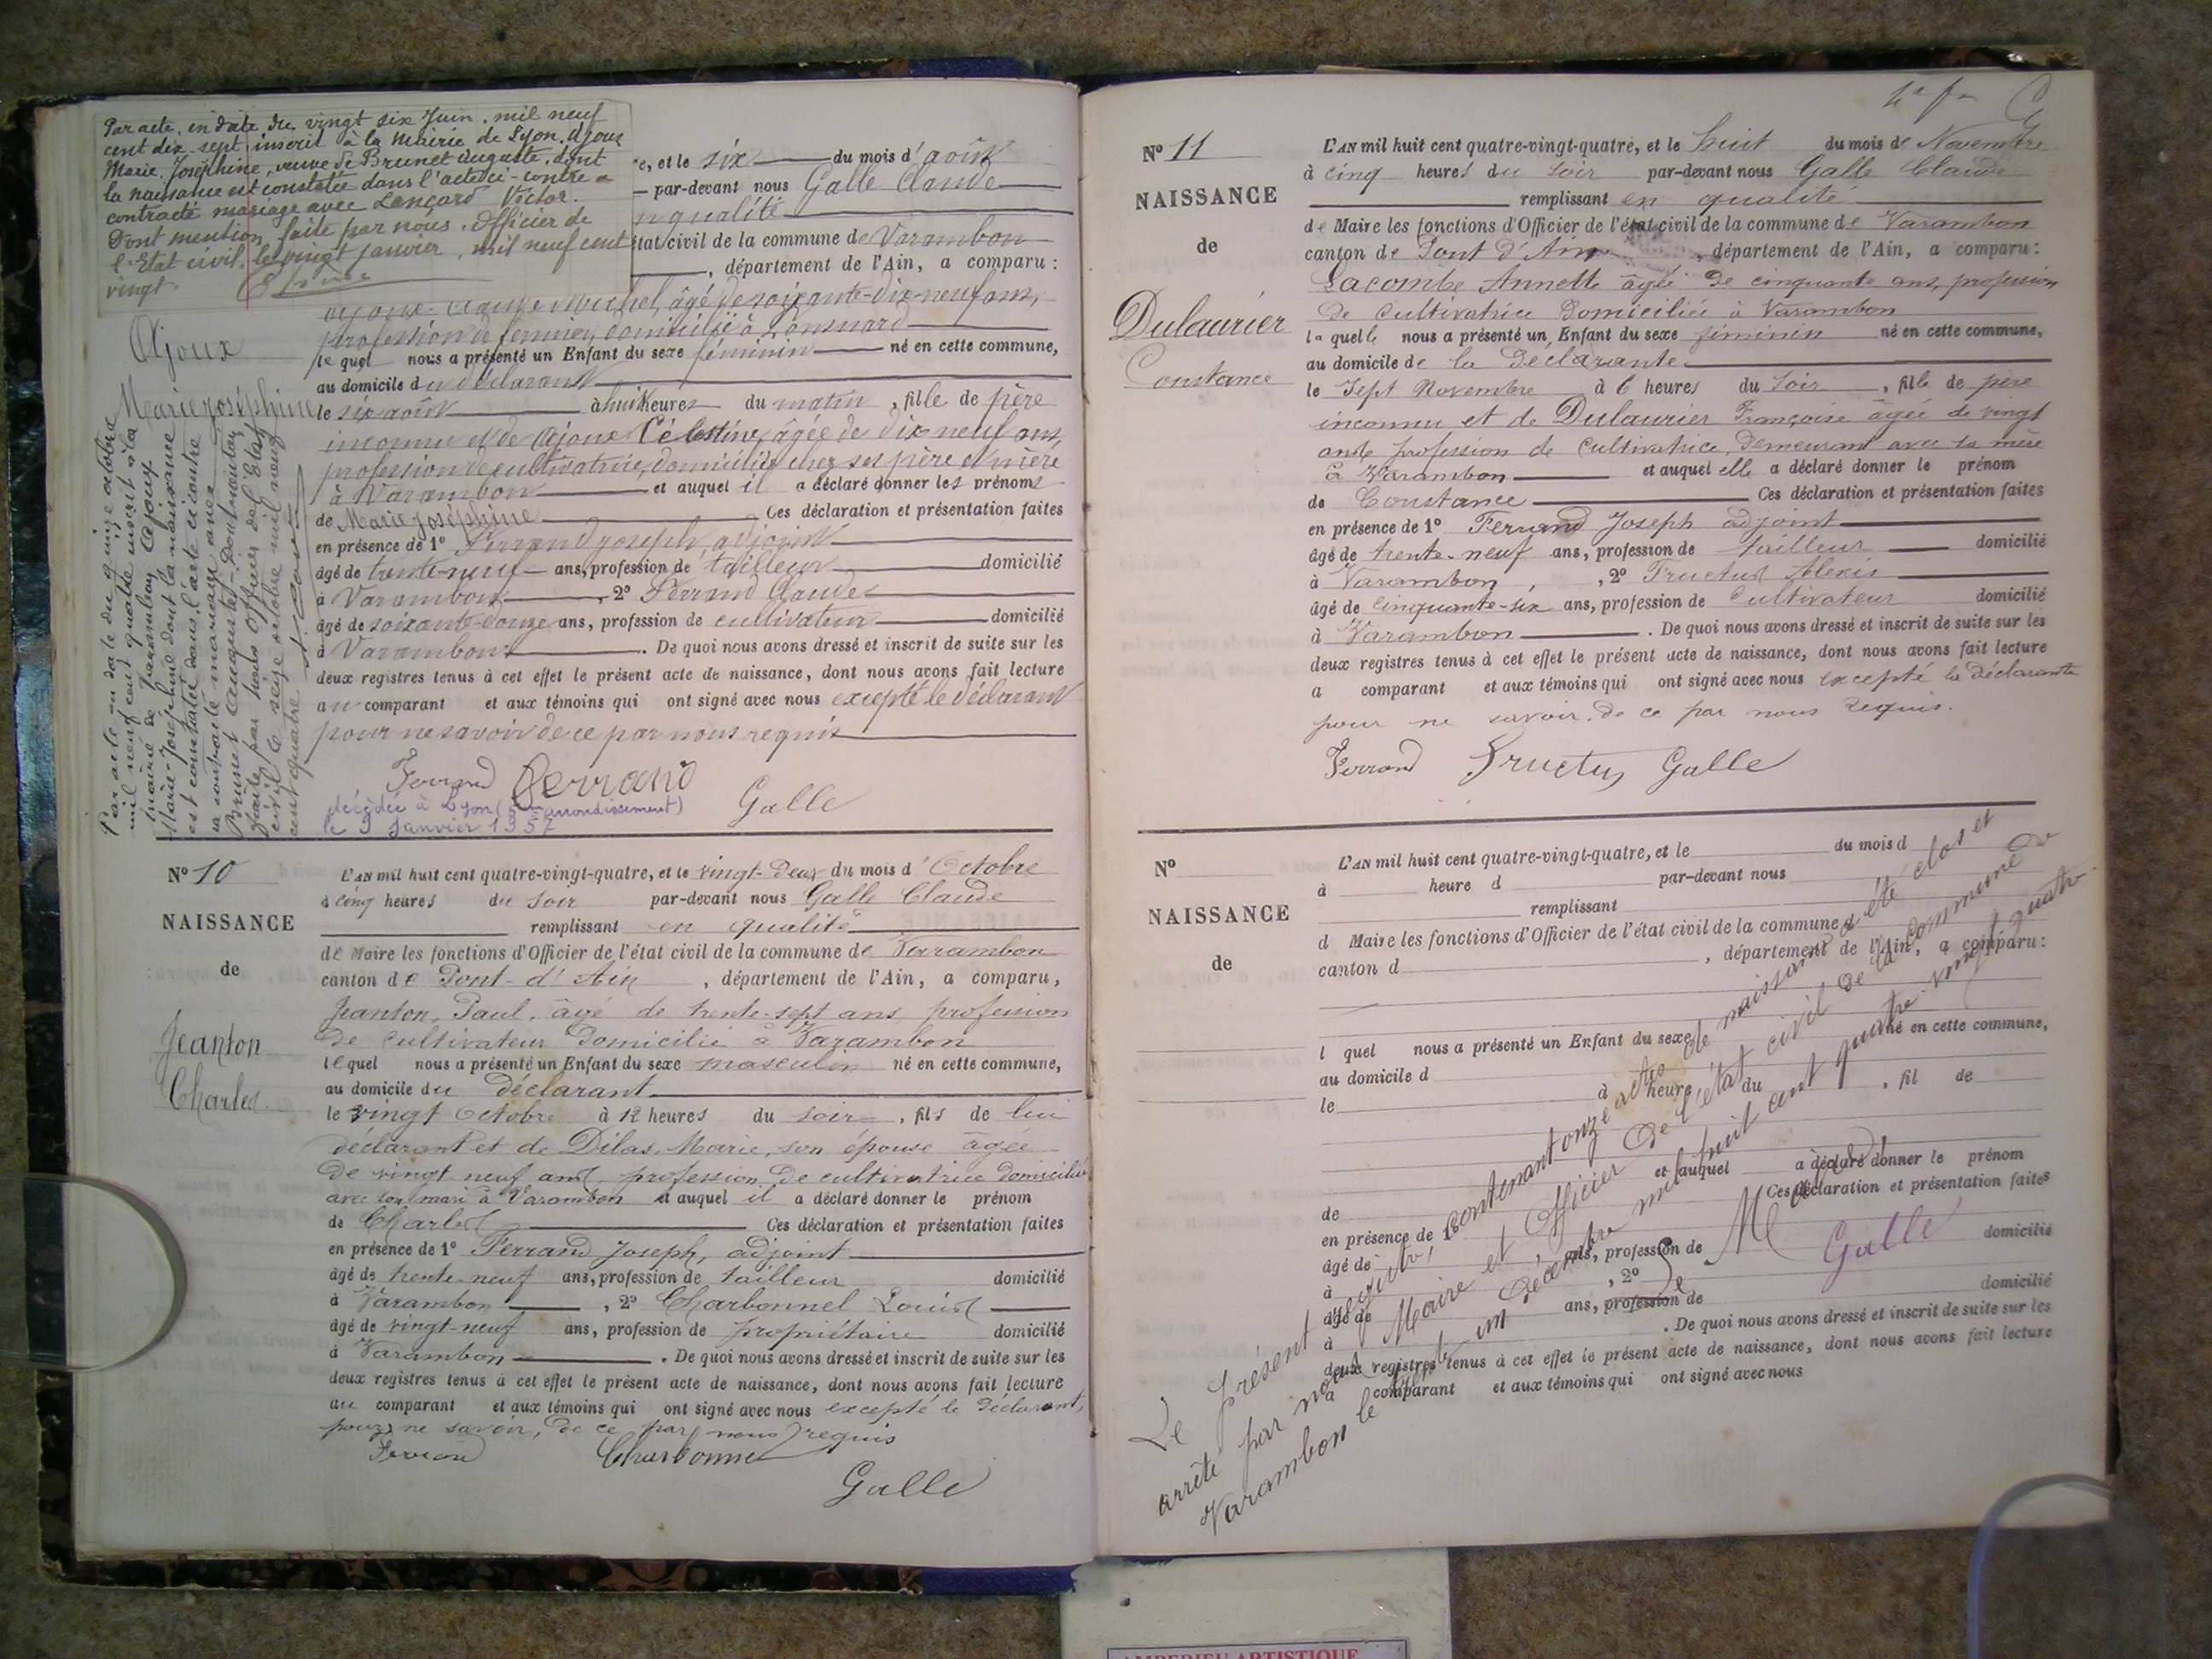 Par acte, en date du vingt six Juin, mil neuf
cent dix sept, inscrit à la Mairie de Lyon, Ajoux
Marie Joséphine, veuve de Brunet Auguste, dont
la naissance est constatée dans l'acte ci-contre a
contracté mariage avec Lançard Victor.
Dont mention faite par nous, Officier de
l'Etat civil, le vingt janvier, mil neuf cent
vingt.
Ajoux
Marie Joséphine
Par acte en date du quinze octobre
mil neuf cent quatre inscrit à la
mairie de Varambon Ajoux
Marie-Joséphine dont la naissance
est constatée dans l'acte ci contre
a contracté mariage avec
Brunet Auguste. Dont mention
faite par nous Officier de l'Etat
civil le seize octobre mil neuf
cent quatre
e, et le six du mois d'août
par-devant nous Galle Claude
en qualité
état civil de la commune de Varambon
, département de l'Ain, a comparu :
Ajoux Claude Michel, âgé de soixante-dix-neuf ans,
profession de fermier, domicilié à
lequel nous a présenté un Enfant du sexe féminin né en cette commune,
au domicile du déclarant
le six août à huit heures du matin, fille de père
inconnu et de Ajoux Célestine, âgée de dix neuf ans,
profession de cultivatrice, domiciliée chez ses père et mère
à Varambon et auquel il a déclaré donner les prénoms
de Marie Joséphine Ces déclaration et présentation faites
en présence de 1º Ferrand Joseph, adjoint
âgé de trente-neuf ans, profession de tailleur domicilié
à Varambon, 2º Ferrand Claude
âgé de soixante-douze ans, profession de cultivateur domicilié
à Varambon. De quoi nous avons dressé et inscrit de suite sur les
deux registres tenus à cet effet le présent acte de naissance, dont nous avons fait lecture
au comparant et aux témoins qui ont signé avec nous excepté le déclarant
pour ne savoir de ce par nous requis
Ferrand Ferrand
Galle
décédée à Lyon (arrondissement)
le 9 Janvier 1957
Nº 10
NAISSANCE
de
Jeanton
Charles
L'AN mil huit cent quatre-vingt-quatre, et le vingt-deux du mois d'Octobre
à cinq heures du soir par-devant nous Galle Claude
remplissant en qualité
de Maire les fonctions d'Officier de l'état civil de la commune de Varambon
canton de Pont-d'Ain, département de l'Ain, a comparu,
Jeanton, Paul, âgé de trente-sept ans profession
de cultivateur domicilié à Varambon
lequel nous a présenté un Enfant du sexe masculin né en cette commune,
au domicile du déclarant
le vingt Octobre à 12 heures du soir, fils de lui
déclarant et de Dilas, Marie, son épouse âgée
de vingt neuf ans, profession de cultivatrice domiciliée
avec son mari à Varambon et auquel il a déclaré donner le prénom
de Charles Ces déclaration et présentation faites
en présence de 1º Ferrand Joseph, adjoint
âgé de trente-neuf ans, profession de tailleur domicilié
à Varambon, 2º Charbonnel Louis
âgé de vingt-neuf ans, profession de propriétaire domicilié
à Varambon. De quoi nous avons dressé et inscrit de suite sur les
deux registres tenus à cet effet le présent acte de naissance, dont nous avons fait lecture
au comparant et aux témoins qui ont signé avec nous excepté le déclarant,
pour ne savoir, de ce par nous requis
Ferrand Charbonnel
Galle
Nº 11
NAISSANCE
de
Dulaurier
Constance
L'AN mil huit cent quatre-vingt-quatre, et le huit du mois de Novembre
à cinq heures du soir par-devant nous Galle Claude
remplissant en qualité
de Maire les fonctions d'Officier de l'état civil de la commune de Varambon
canton de Pont d'Ain, département de l'Ain, a comparu :
Lacombe Annette âgée de cinquante ans, profession
de Cultivatrice Domiciliée à Varambon
laquelle nous a présenté un Enfant du sexe féminin né en cette commune,
au domicile de la déclarante
le Sept Novembre à 6 heures du soir, fille de père
inconnu et de Dulaurier Françoise âgée de vingt
ans profession de Cultivatrice, demeurant avec sa mère
à Varambon et auquel elle a déclaré donner le prénom
de Constance Ces déclaration et présentation faites
en présence de 1º Ferrand Joseph adjoint
âgé de trente-neuf ans, profession de tailleur domicilié
à Varambon, 2º Fructus Alexis
âgé de Cinquante-six ans, profession de Cultivateur domicilié
à Varambon. De quoi nous avons dressé et inscrit de suite sur les
deux registres tenus à cet effet le présent acte de naissance, dont nous avons fait lecture
a comparant et aux témoins qui ont signé avec nous excepté la déclarante
pour ne savoir, de ce par nous requis.
Ferrand Fructus Galle
Nº
NAISSANCE
de
L'AN mil huit cent quatre-vingt-quatre, et le du mois d
à heure d par-devant nous
remplissant
d Maire les fonctions d'Officier de l'état civil de la commune d
canton d , département de l'Ain, a comparu :
l quel nous a présenté un Enfant du sexe né en cette commune,
au domicile d
le à heure du , fil de
et auquel a déclaré donner le prénom
de Ces déclaration et présentation faites
en présence de 1º
âgé de ans, profession de domicilié
à , 2º
âgé de ans, profession de domicilié
à . De quoi nous avons dressé et inscrit de suite sur les
deux registres tenus à cet effet le présent acte de naissance, dont nous avons fait lecture
a comparant et aux témoins qui ont signé avec nous
Le présent registre, contenant onze actes de naissance a été clos et
arrêté par nous Maire et Officier de l'état civil de la commune de
Varambon le trente un décembre mil huit cent quatre-vingt quatre
Galle
AMBERIEU ARTISTIQUE